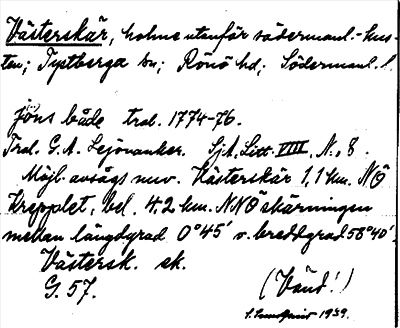 Västerskär, holme utanför södermanl.-kus-
ten; Tystberga sn; Rönö hd; Södermanl. l.
jöns både trol. 1774-76.
Trol. G. A. Lejonanker. SjA, Litt. VIII, N:o 8.
Möjl. avságs nuv. Västerskär 1,1 km. NÖ
Krepplet, bel. 4,2 km. NNÖ skärningen
mellan längdgrad 0°45' o. breddgrad 58°40'.
Västersk. sk.
G. 57.
(Vänd!)
1939.